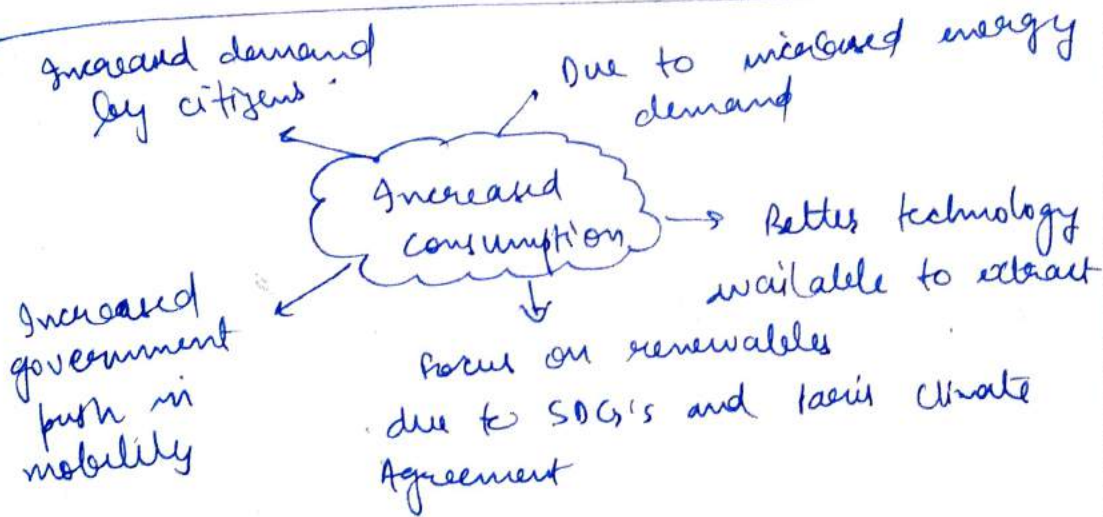 Increased demand
by citizens
Due to increased energy
demand
Increased
consumption
Better technology
available to extract
Increased
government
push in
mobility
Focus on renewables
due to SDG's and Paris Climate
Agreement